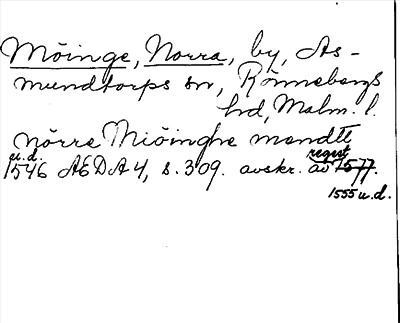 Möinge, Norra, by, As-
mundtorps sn, Rönnebergs
hd, Malm. l.
nörre Miöinghe mandtt
u.d.
1546 AEDA4, s. 309. avskr. av regest 1577.
1555 u.d.